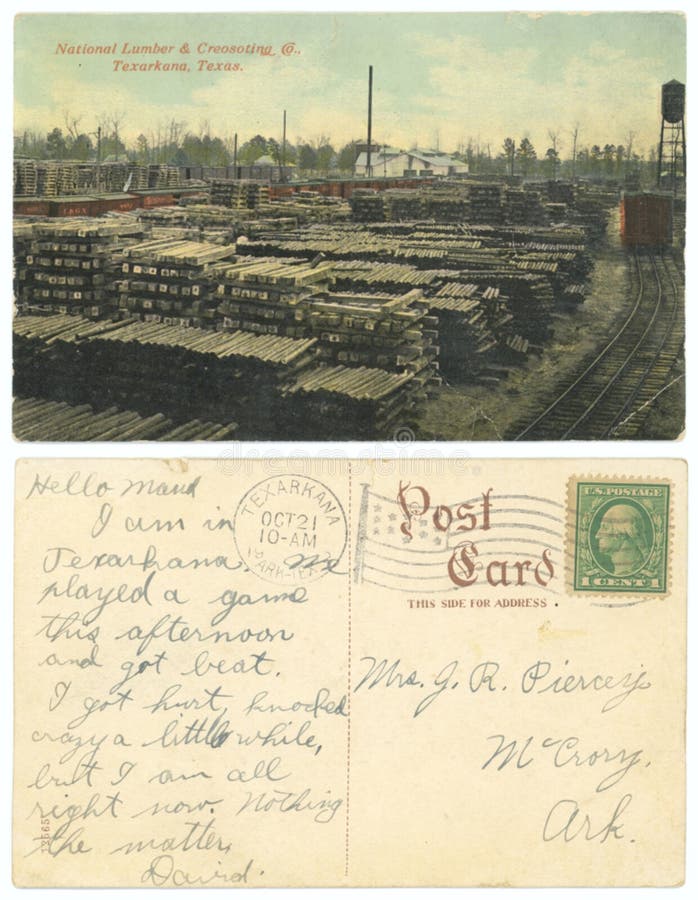 National Lumber & Creosoting Co.,
Texarkana, Texas.
Hello Maud
I am in
Texarkana. We
played a game
this afternoon
and got beat.
I got hurt, knocked
crazy a little while,
but I am all
right now. Nothing
the matter,
David.
TEXARKANA
OCT 21
10-AM
19
ARK-TEX
Post
Card
THIS SIDE FOR ADDRESS
U.S. POSTAGE
1 CENT 1
Mrs. J. R. Piercey,
McCrory,
Ark.
dreamstime